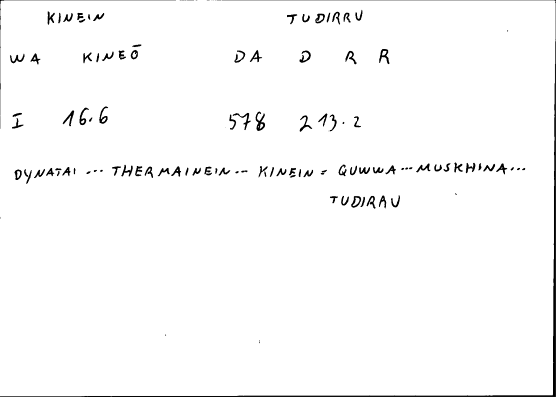 KINEIN TUDIRRU
WA KINEŌ DA D R R
I 16.6 578 213.2
DYNATAI ... THERMAINEIN ... KINEIN = QUWWA ... MUSKHINA ...
TUDIRRU